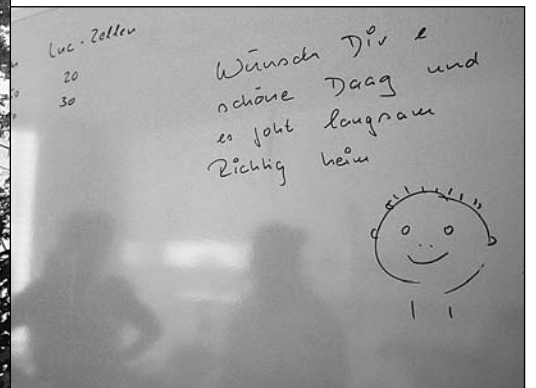 Luc-Zellen
20
30
Wünsch Dir e
schöne Daag und
es joht langsam
Richtig heim